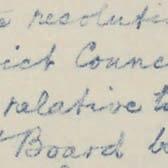 e resoluti
ict Counc
relative to
Board b